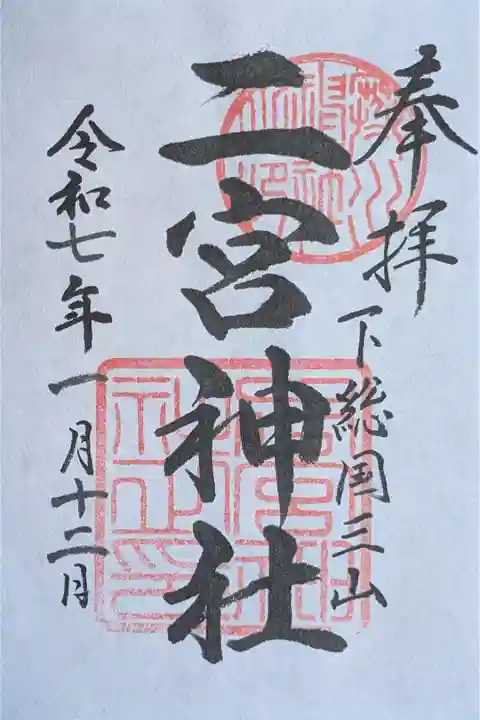 奉拝
下総国三山
二宮神社
令和七年一月十二月